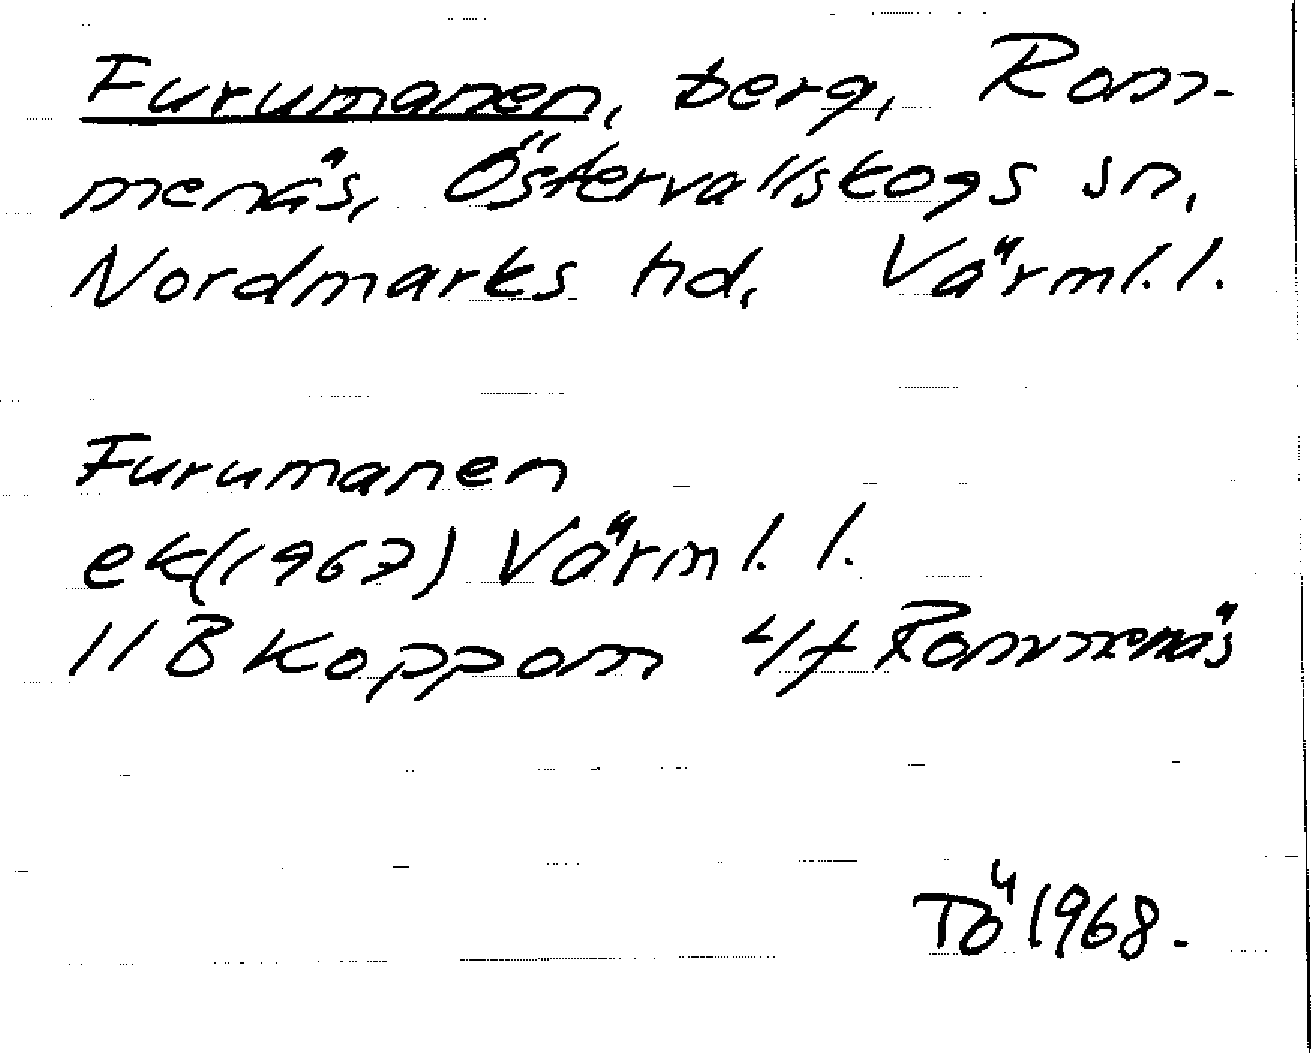 Furumanen, berg, Rom-
menäs, Östervallskogs sn,
Nordmarks hd, Värml. l.
Furumanen
ek (1967) Värml. l.
11B Koppom 4f Rommenäs
TÖ 1968.